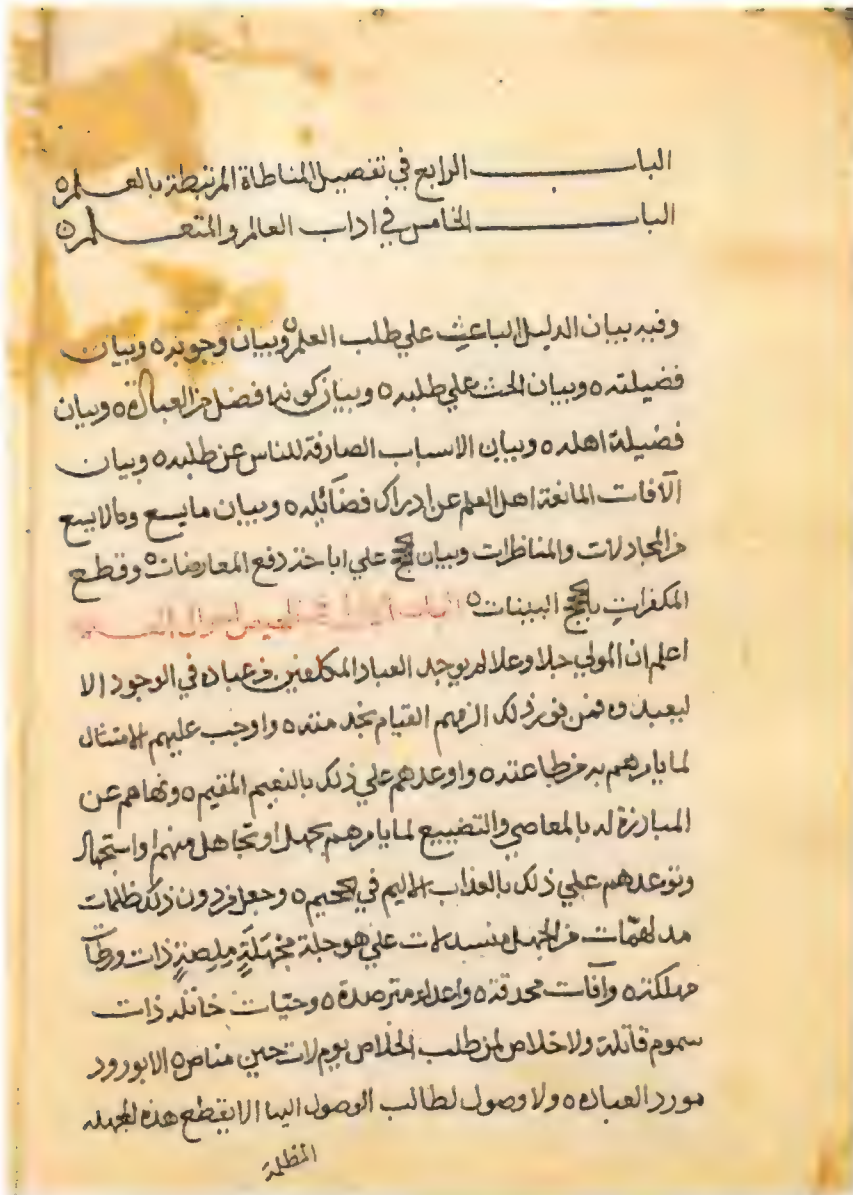 الباب الرابع في تفصيل المناطاة المرتبطة بالعلم ه
الباب الخامس في اداب العالم والمتعلم ه
وفيه بيان الدليل الباعث علي طلب العلم ه وبيان وجوبه ه وبيان
فضيلته ه وبيان الحث علي طلبه ه وبيان كونه افضل من العبادة ه وبيان
فضيلة اهله ه وبيان الاسباب الصارفة للناس عن طلبه ه وبيان
الآفات المانعة اهل العلم عن ادراك فضائله ه وبيان ما يسع وما لا يسع
من المجادلات والمناظرات وبيان حجج علي اباحة دفع المعارضات ه وقطع
المكفرات بالحجج البينات ه الباب الاول في
اعلم ان المولي جلا وعلا لم يوجد العباد المكلفين من عباده في الوجود الا
ليعبدوه فمن فور ذلك الزمهم القيام بحد منته ه واوجب عليهم الامتثال
لما يامرهم به من طاعته ه واوعدهم علي ذلك بالنعيم المقيم ه ونهاهم عن
المبارزة له بالمعاصي والتضييع لما يامرهم بجهل او تجاهل منهم او استجهال
وتوعدهم علي ذلك بالعذاب الاليم في الجحيم ه وجعل من دون ذلك ظلمات
مدلهمّات من الجهل منسدلات علي هوجلة مجهلةٍ ملصةٍ ذات ورطات
مهلكة ه وآفات محدقة ه واعداء مترصدة ه وحيّات خاتله ذات
سموم قاتلة ولا خلاص لمن طلب الخلاص يوم لات حين مناص ه الا بورود
مورد العباده ه ولا وصول لطالب الوصول اليها الا بقطع هذه المجهله
المظلمة